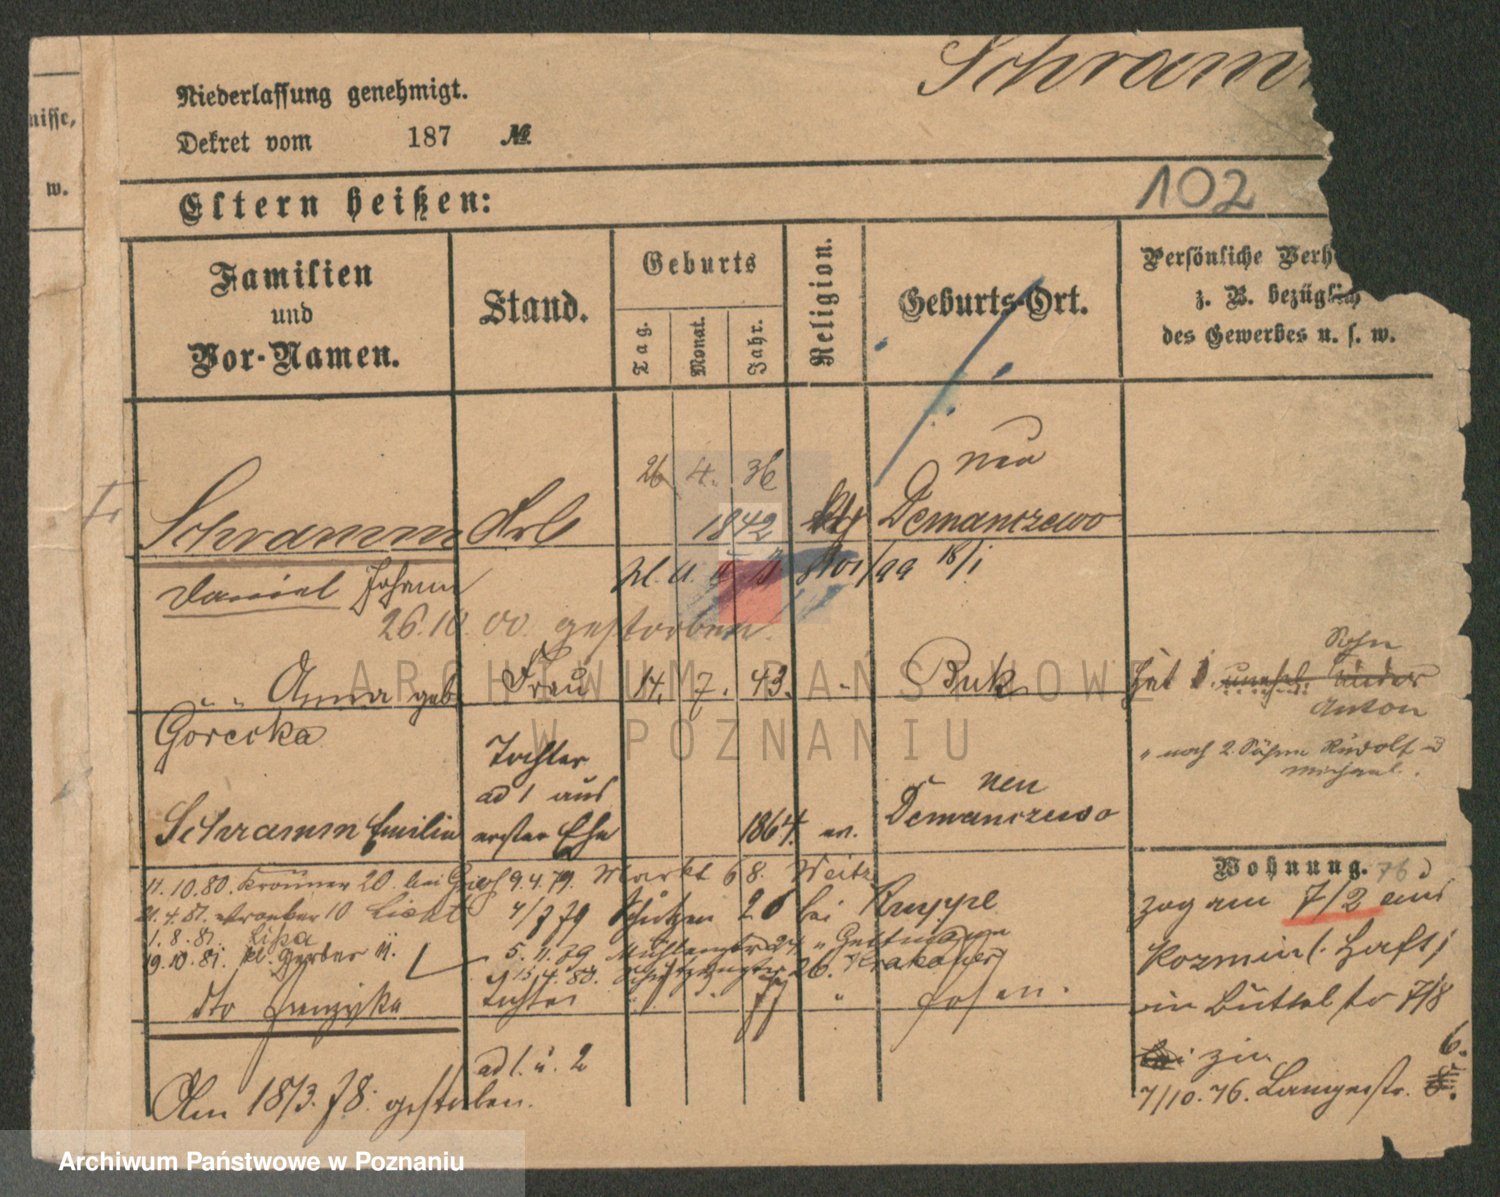 Schram
Niederlassung genehmigt.
Dekret vom 187 №
nisse,
w.
Eltern heißen:
102
Familien und Vor-Namen.
Stand.
Geburts
Tag.
Monat.
Jahr.
Religion.
Geburts-Ort.
Persönliche Verh
z. B. bezüglich
des Gewerbes u. s. w.
26 4. 36 neu
Schramm Arb 1842 Demanczewo
Daniel Johann 18/1
26.10.00. gestorben.
" " Anna geb. Frau 14. 7. 43. - Buk
Gorecka
Sohn
hat 1. unehel. Kinder
Anton
" noch 2 Söhne Rudolf u
Michael.
Tochter
ad 1 aus
erster Ehe
Schramm Emilie 1864. ev. neu Demanczewo
Wohnung. 76
11.10.80. Krämer 20. bei 9.4.79. Markt 68. Weitz
21.4.81. Gerber 10 Licht 4/7 79 Schützen 26 bei Kruppe
1.8.81. Lissa
19.10.81. kl. Gerber 11. 5.11.79 Mühlenstr 24 "
15.4.80. Schützenstr 26. Krakauer
dto Franziska Tochter " " 77 " Posen.
ad 1. u. 2
Am 18/3. 78. gestorben.
zog am 7/2 aus
Kozmin (. Haft)
in Büttelstr 7/8
bei zu
6.
7/10.76. Langestr. 8.
ARCHIWUM PAŃSTWOWE
W POZNANIU
Archiwum Państwowe w Poznaniu